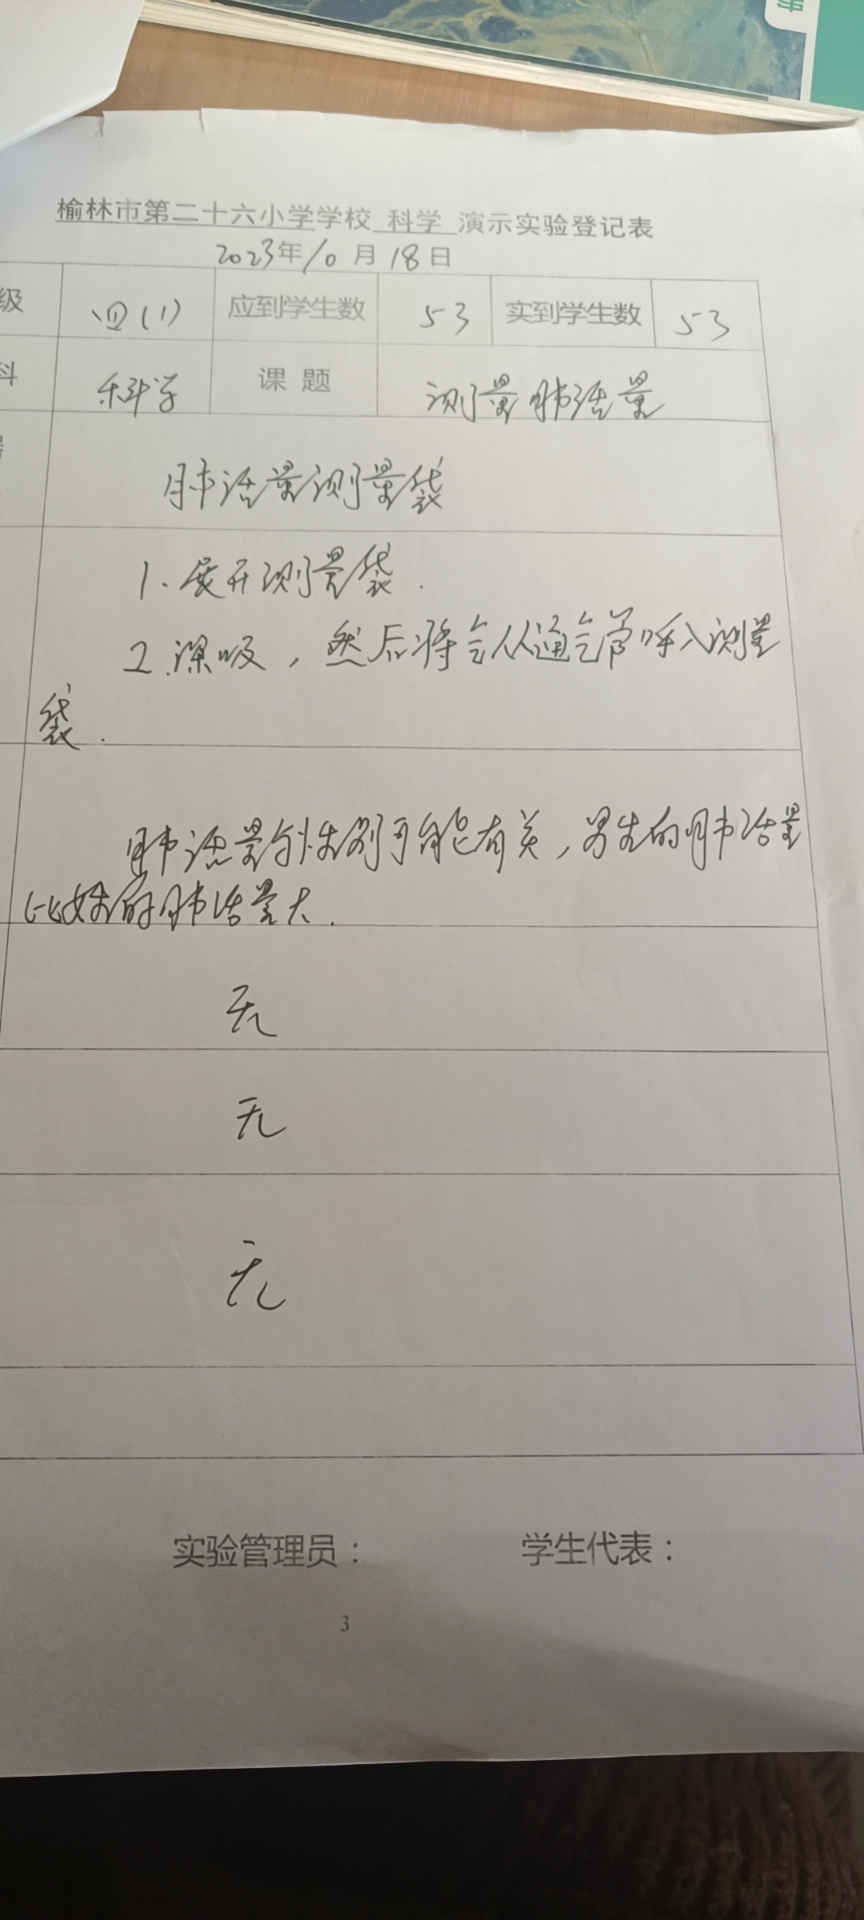 榆林市第二十六小学学校 科学 演示实验登记表
2023年10月18日
级 四(1) 应到学生数 53 实到学生数 53
科 科学 课题 测量肺活量
肺活量测量袋
1.展开测量袋.
2.深吸,然后将气从通气管呼入测量
袋.
肺活量与性别可能有关,男生的肺活量
比女生的肺活量大.
无
无
无
实验管理员: 学生代表:
3